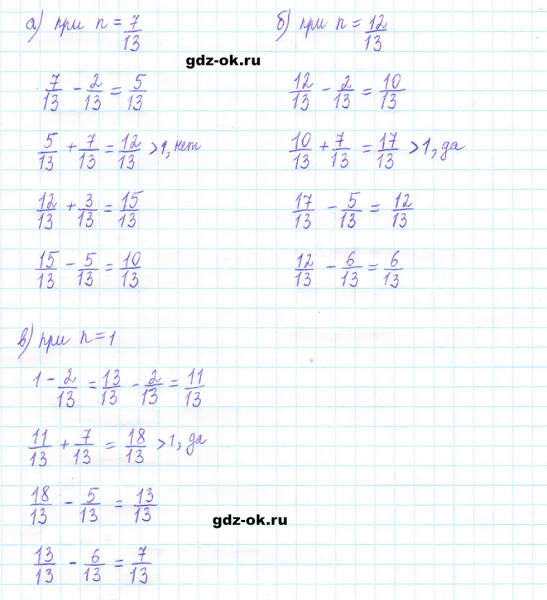 а) при n = 7/13
7/13 - 2/13 = 5/13
5/13 + 7/13 = 12/13 > 1, нет
12/13 + 3/13 = 15/13
15/13 - 5/13 = 10/13
б) при n = 12/13
12/13 - 2/13 = 10/13
10/13 + 7/13 = 17/13 > 1, да
17/13 - 5/13 = 12/13
12/13 - 6/13 = 6/13
gdz-ok.ru
в) при n = 1
1 - 2/13 = 13/13 - 2/13 = 11/13
11/13 + 7/13 = 18/13 > 1, да
18/13 - 5/13 = 13/13
13/13 - 6/13 = 7/13
gdz-ok.ru